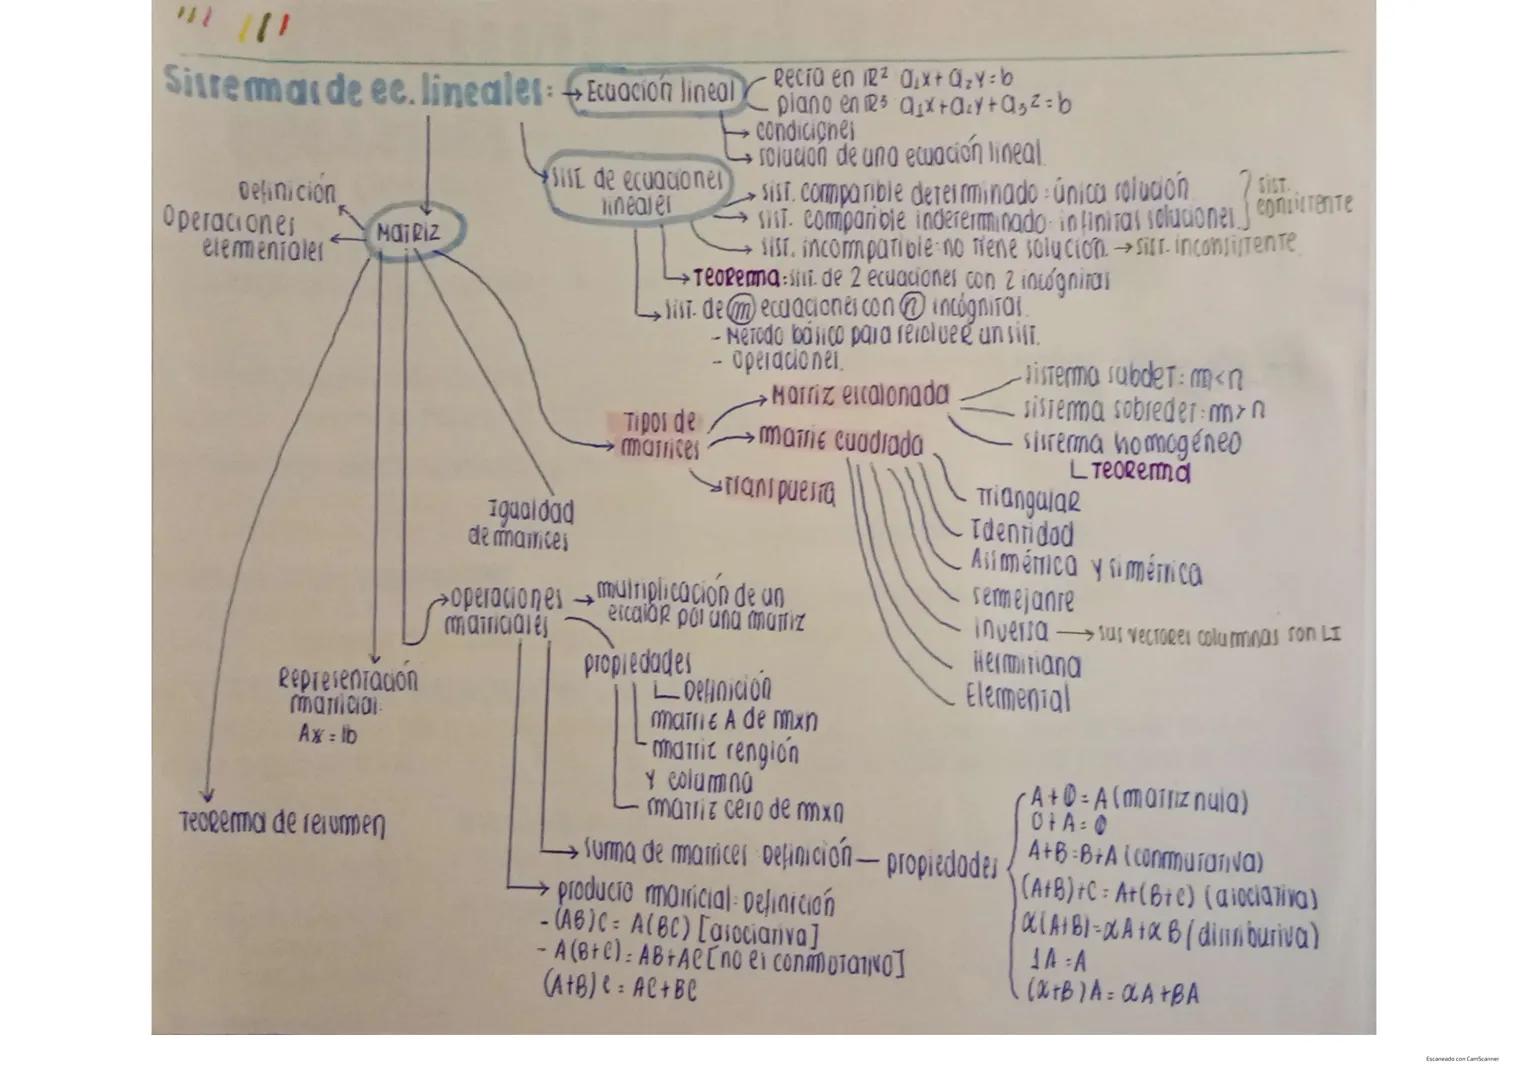 Sistemas de ec. lineales:
→ Ecuación lineal
Recta en ℝ² a₁x + a₂y = b
plano en ℝ³ a₁x + a₂y + a₃z = b
→ condiciones
→ solución de una ecuación lineal
sist. de ecuaciones
lineales
→ sist. compatible determinado: única solución
→ sist. compatible indeterminado: infinitas soluciones
sist.
consistente
→ sist. incompatible: no tiene solución → sist. inconsistente
→ Teorema: sist. de 2 ecuaciones con 2 incógnitas
→ sist. de m ecuaciones con n incógnitas
- Método básico para resolver un sist.
- operaciones
Matriz
Definición
Operaciones
elementales
Tipos de
matrices
→ Matriz escalonada
sistema subdet: m<n
sistema sobredet: m>n
sistema homogéneo
Teorema
→ matriz cuadrada
Triangular
Identidad
Asimétrica y simétrica
semejante
inversa → sus vectores columnas son LI
Hermitiana
Elemental
→ transpuesta
Igualdad
de matrices
→ operaciones
matriciales
→ multiplicación de un
escalar por una matriz
propiedades
Definición
matriz A de mxn
matriz renglón
y columna
matriz cero de mxn
Representación
matricial:
Ax = b
Teorema de resumen
→ suma de matrices Definición — propiedades
A + 0 = A (matriz nula)
0 + A = 0
A+B = B+A (conmutativa)
(A+B)+C = A+(B+C) (asociativa)
α(A+B) = αA + αB (distributiva)
1A = A
(α+β)A = αA + βA
→ producto matricial: Definición
- (AB)C = A(BC) [asociativa]
- A(B+C) = AB+AC [no es conmutativo]
(A+B)C = AC+BC
Escaneado con CamScanner